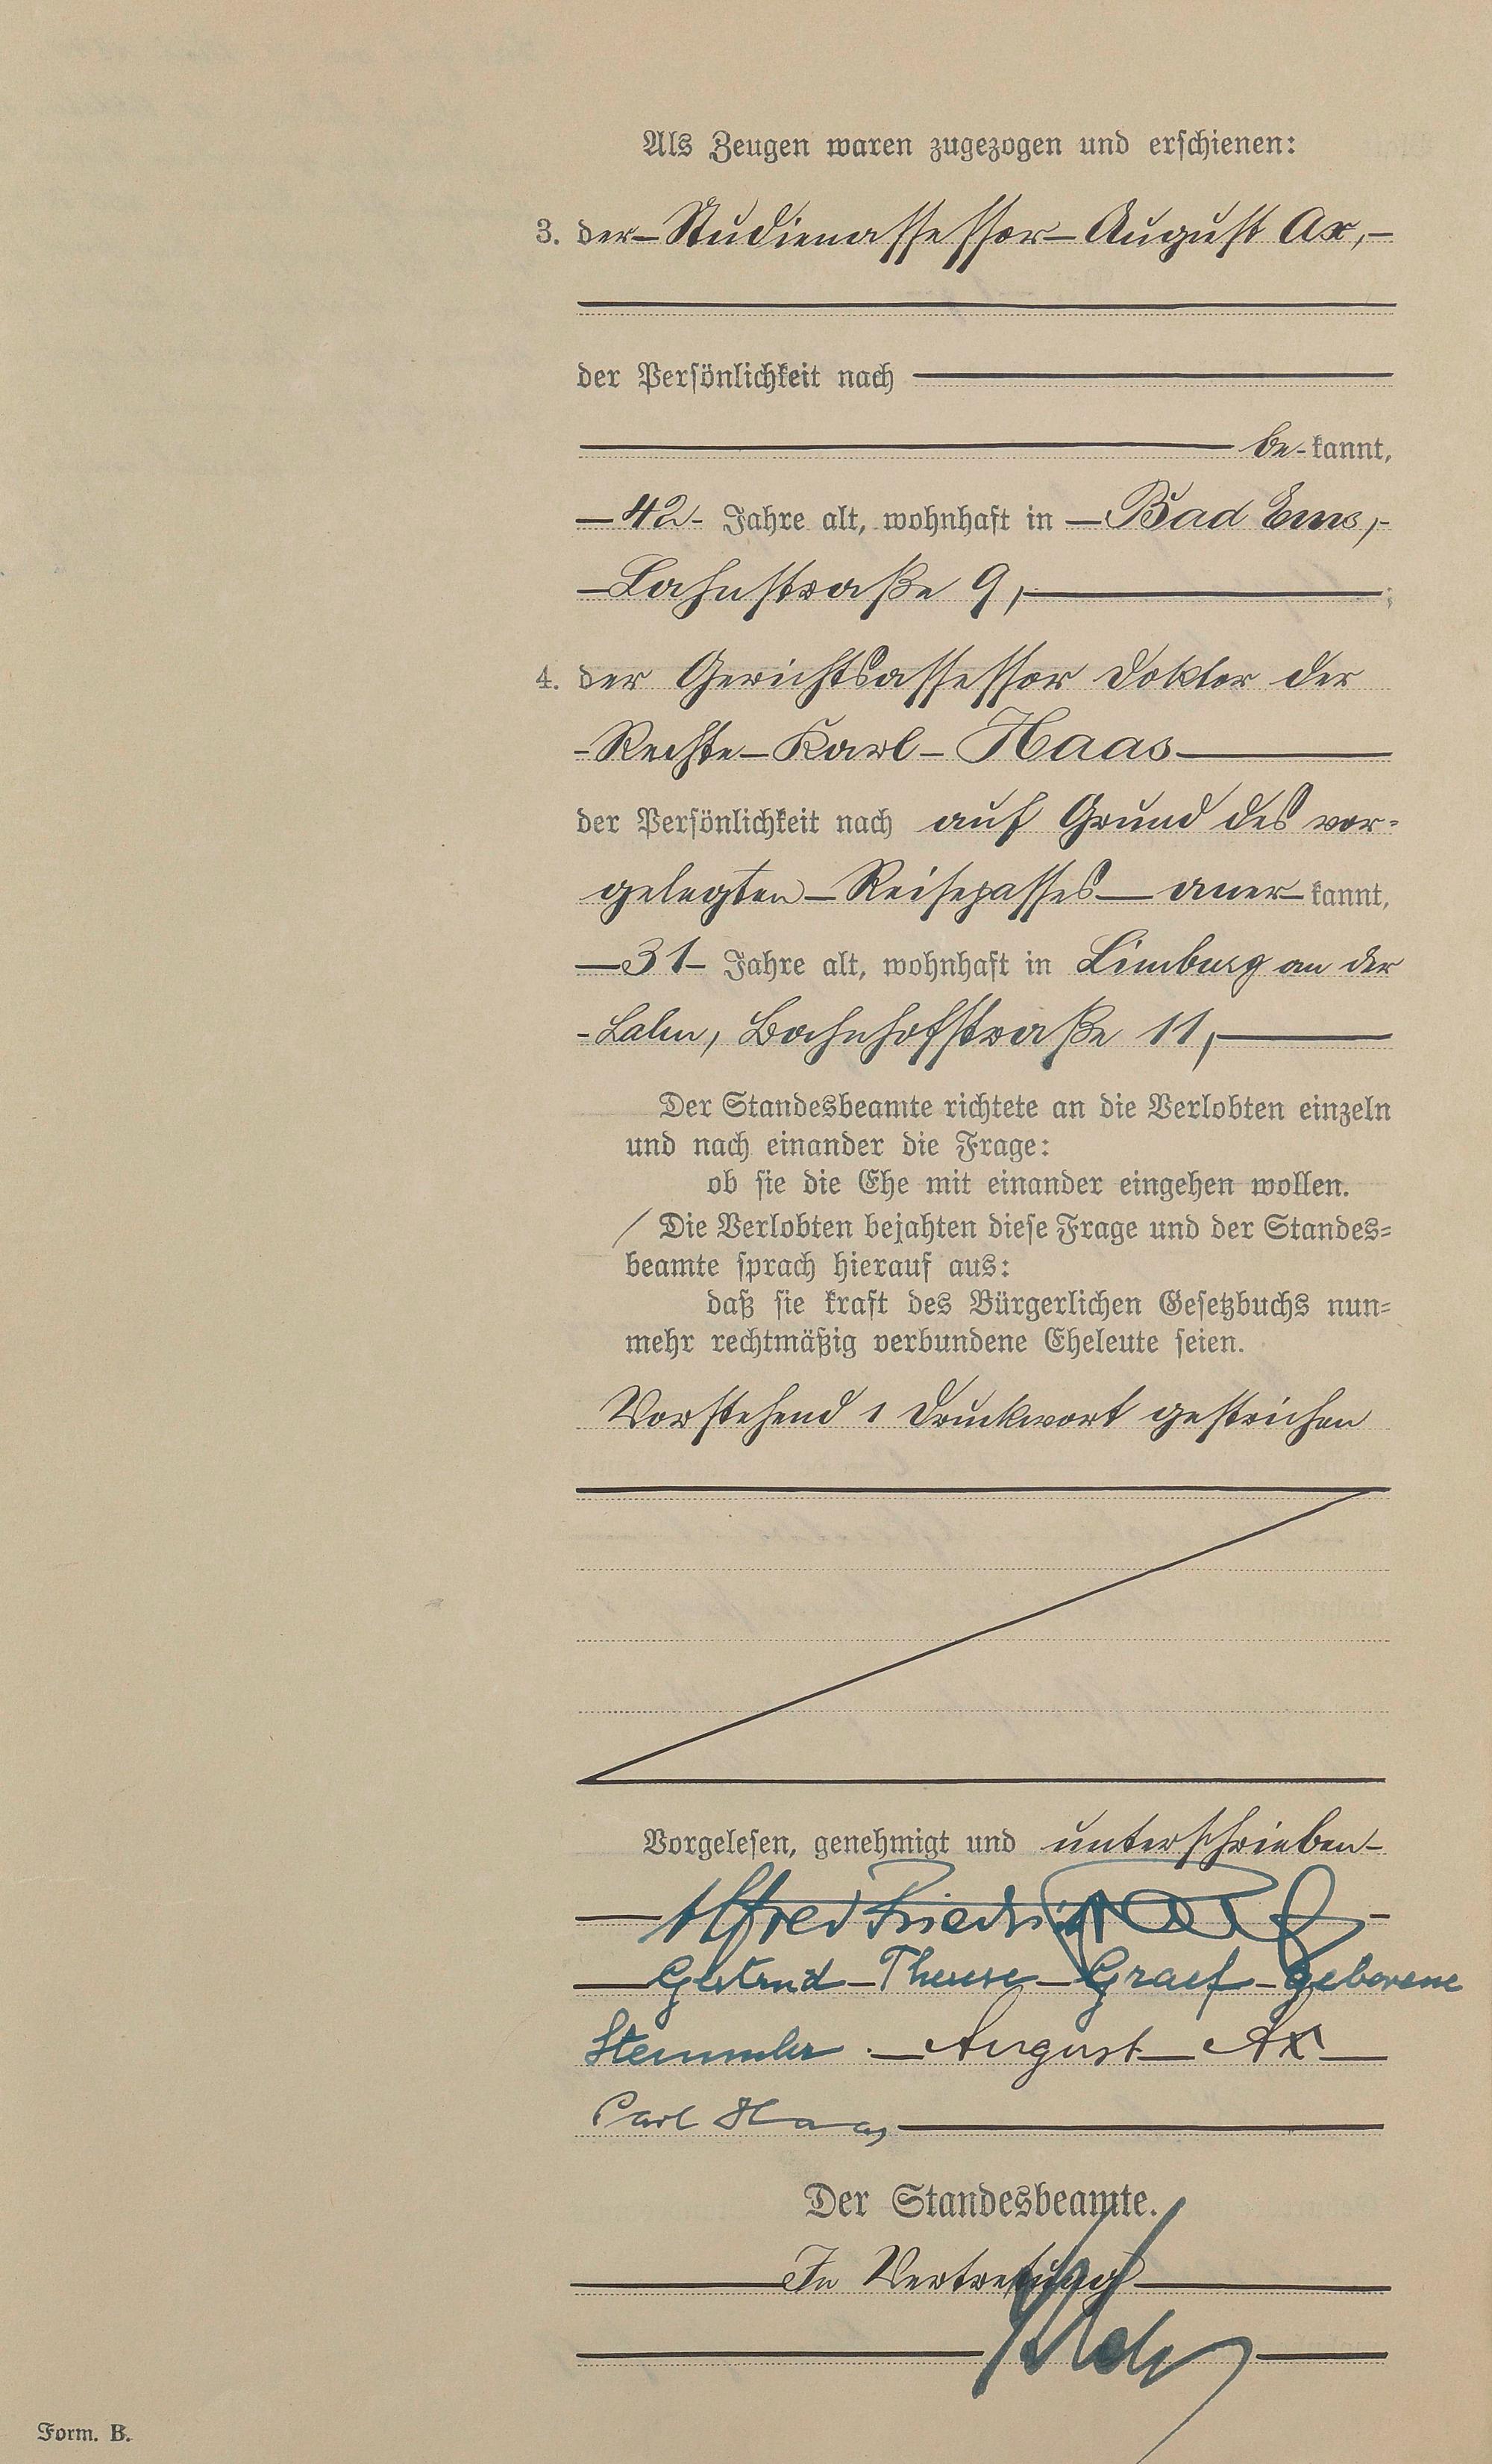 Als Zeugen waren zugezogen und erschienen:
3. der Studienassessor August Ax,
der Persönlichkeit nach
be-kannt,
42 Jahre alt, wohnhaft in Bad Ems,
Lahnstraße 9, ;
4. der Gerichtsassessor Doktor der
Rechte Karl Haas
der Persönlichkeit nach auf Grund des vor-
gelegten Reisepasses aner-kannt,
31 Jahre alt, wohnhaft in Limburg an der
Lahn, Bahnhofstraße 11,
Der Standesbeamte richtete an die Verlobten einzeln
und nach einander die Frage:
ob sie die Ehe mit einander eingehen wollen.
Die Verlobten bejahten diese Frage und der Standes-
beamte sprach hierauf aus:
daß sie kraft des Bürgerlichen Gesetzbuchs nun-
mehr rechtmäßig verbundene Eheleute seien.
Vorstehend 1 Druckwort gestrichen
Vorgelesen, genehmigt und unterschrieben
Alfred Friedrich
Gertrud Therese Graef geborene
Stemmler. August Ax
Carl Haas
Der Standesbeamte.
In Vertretung
Form. B.